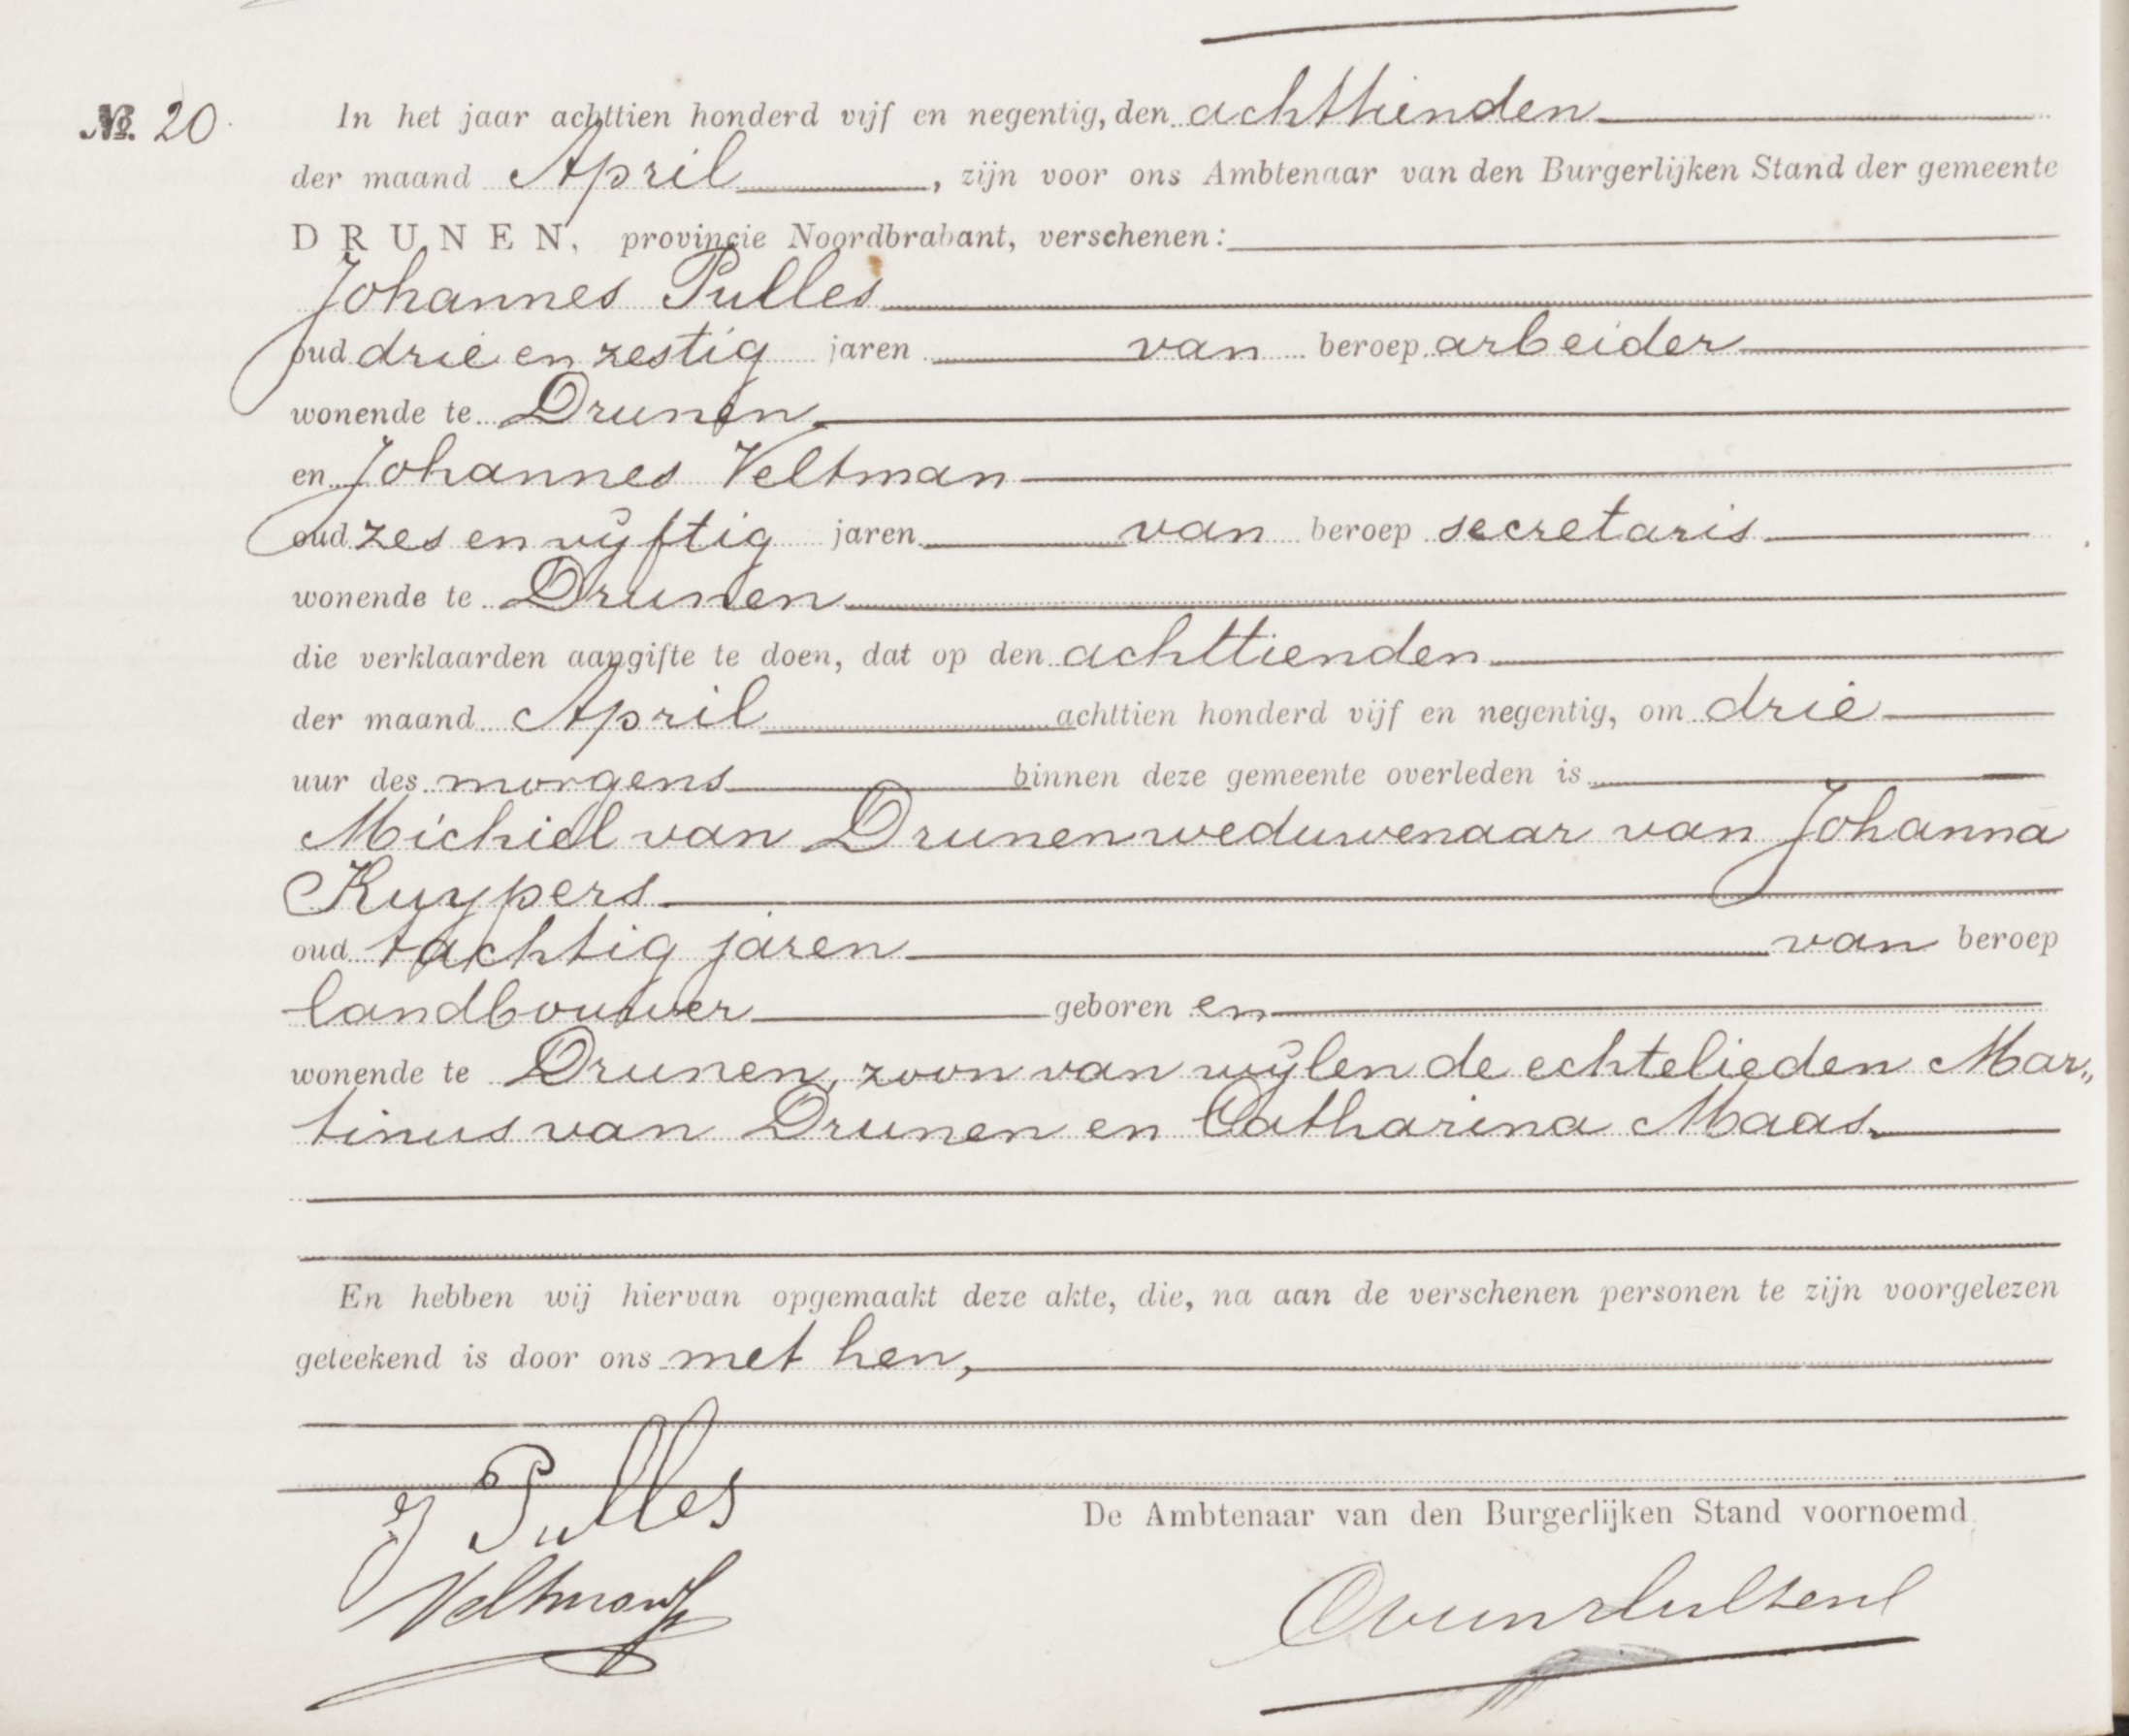 No. 20. In het jaar achttien honderd vijf en negentig, den achttienden
der maand April, zijn voor ons Ambtenaar van den Burgerlijken Stand der gemeente
DRUNEN, provincie Noordbrabant, verschenen:
Johannes Pulles
oud drie en zestig jaren van beroep arbeider
wonende te Drunen
en Johannes Veltman
oud zes en vijftig jaren van beroep secretaris
wonende te Drunen
die verklaarden aangifte te doen, dat op den achttienden
der maand April achttien honderd vijf en negentig, om drie
uur des morgens binnen deze gemeente overleden is
Michiel van Drunen weduwenaar van Johanna
Kuypers
oud tachtig jaren van beroep
landbouwer geboren en
wonende te Drunen, zoon van wijlen de echtelieden Mar„
tinus van Drunen en Catharina Maas.
En hebben wij hiervan opgemaakt deze akte, die, na aan de verschenen personen te zijn voorgelezen
geteekend is door ons met hen,
J Pulles
De Ambtenaar van den Burgerlijken Stand voornoemd
Veltman